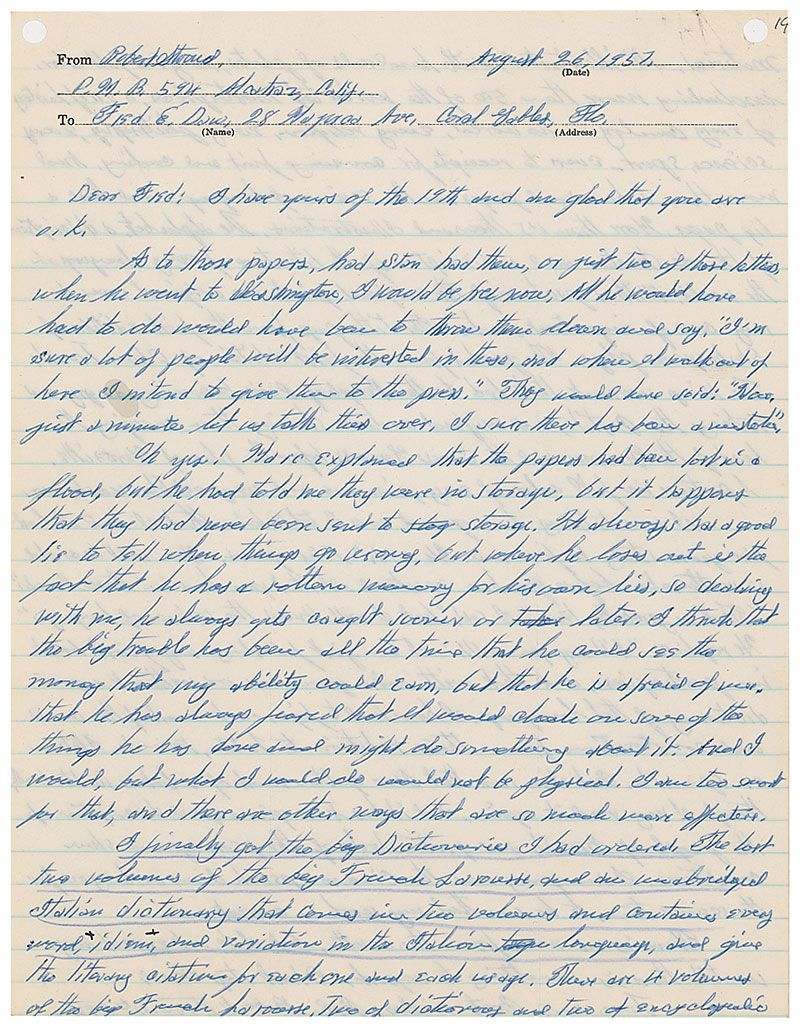 19
From Robert Stroud, August 26, 1957.
(Date)
P.M.B. 594 Alcatraz, Calif.
To Fred E. Daw, 28 Ave, Coral Gables, Fla.
(Name) (Address)
Dear Fred: I have yours of the 19th and am glad that you are
o.k.
As to those papers, had Stan had them, or just two of those letters,
when he went to Washington, I would be free now, All he would have
had to do would have been to throw them down and say, "I'm
sure a lot of people will be interested in these, and when I walk out of
here I intend to give them to the press." They would have said: "Now,
just a minute let us talk this over, I sure there has been a mistake".
Oh yes! Marc explained that the papers had been lost in a
flood, but he had told me they were in storage, but it happens
that they had never been sent to stog storage. He always has a good
lie to tell when things go wrong, but where he loses out is the
fact that he has a rotten memory for his own lies, so dealing
with me, he always gets caught sooner or later. I think that
the big trouble has been all the time that he could see the
money that my ability could earn, but that he is afraid of me.
that he has always feared that I would check on some of the
things he has done and might do something about it. And I
would, but what I would do would not be physical. I am too smart
for that, and there are other ways that are so much more effective.
I finally got the big Dictionaries I had ordered. The last
two volumes of the big French Larousse, and an unabridged
Italian dictionary that comes in two volumes and contains every
word, idiom, and variation in the Italian language, and give
the literary citation for each one and each usage. There are 4 volumes
of the big French Larousse, Two of dictionary and two of encyclopedic